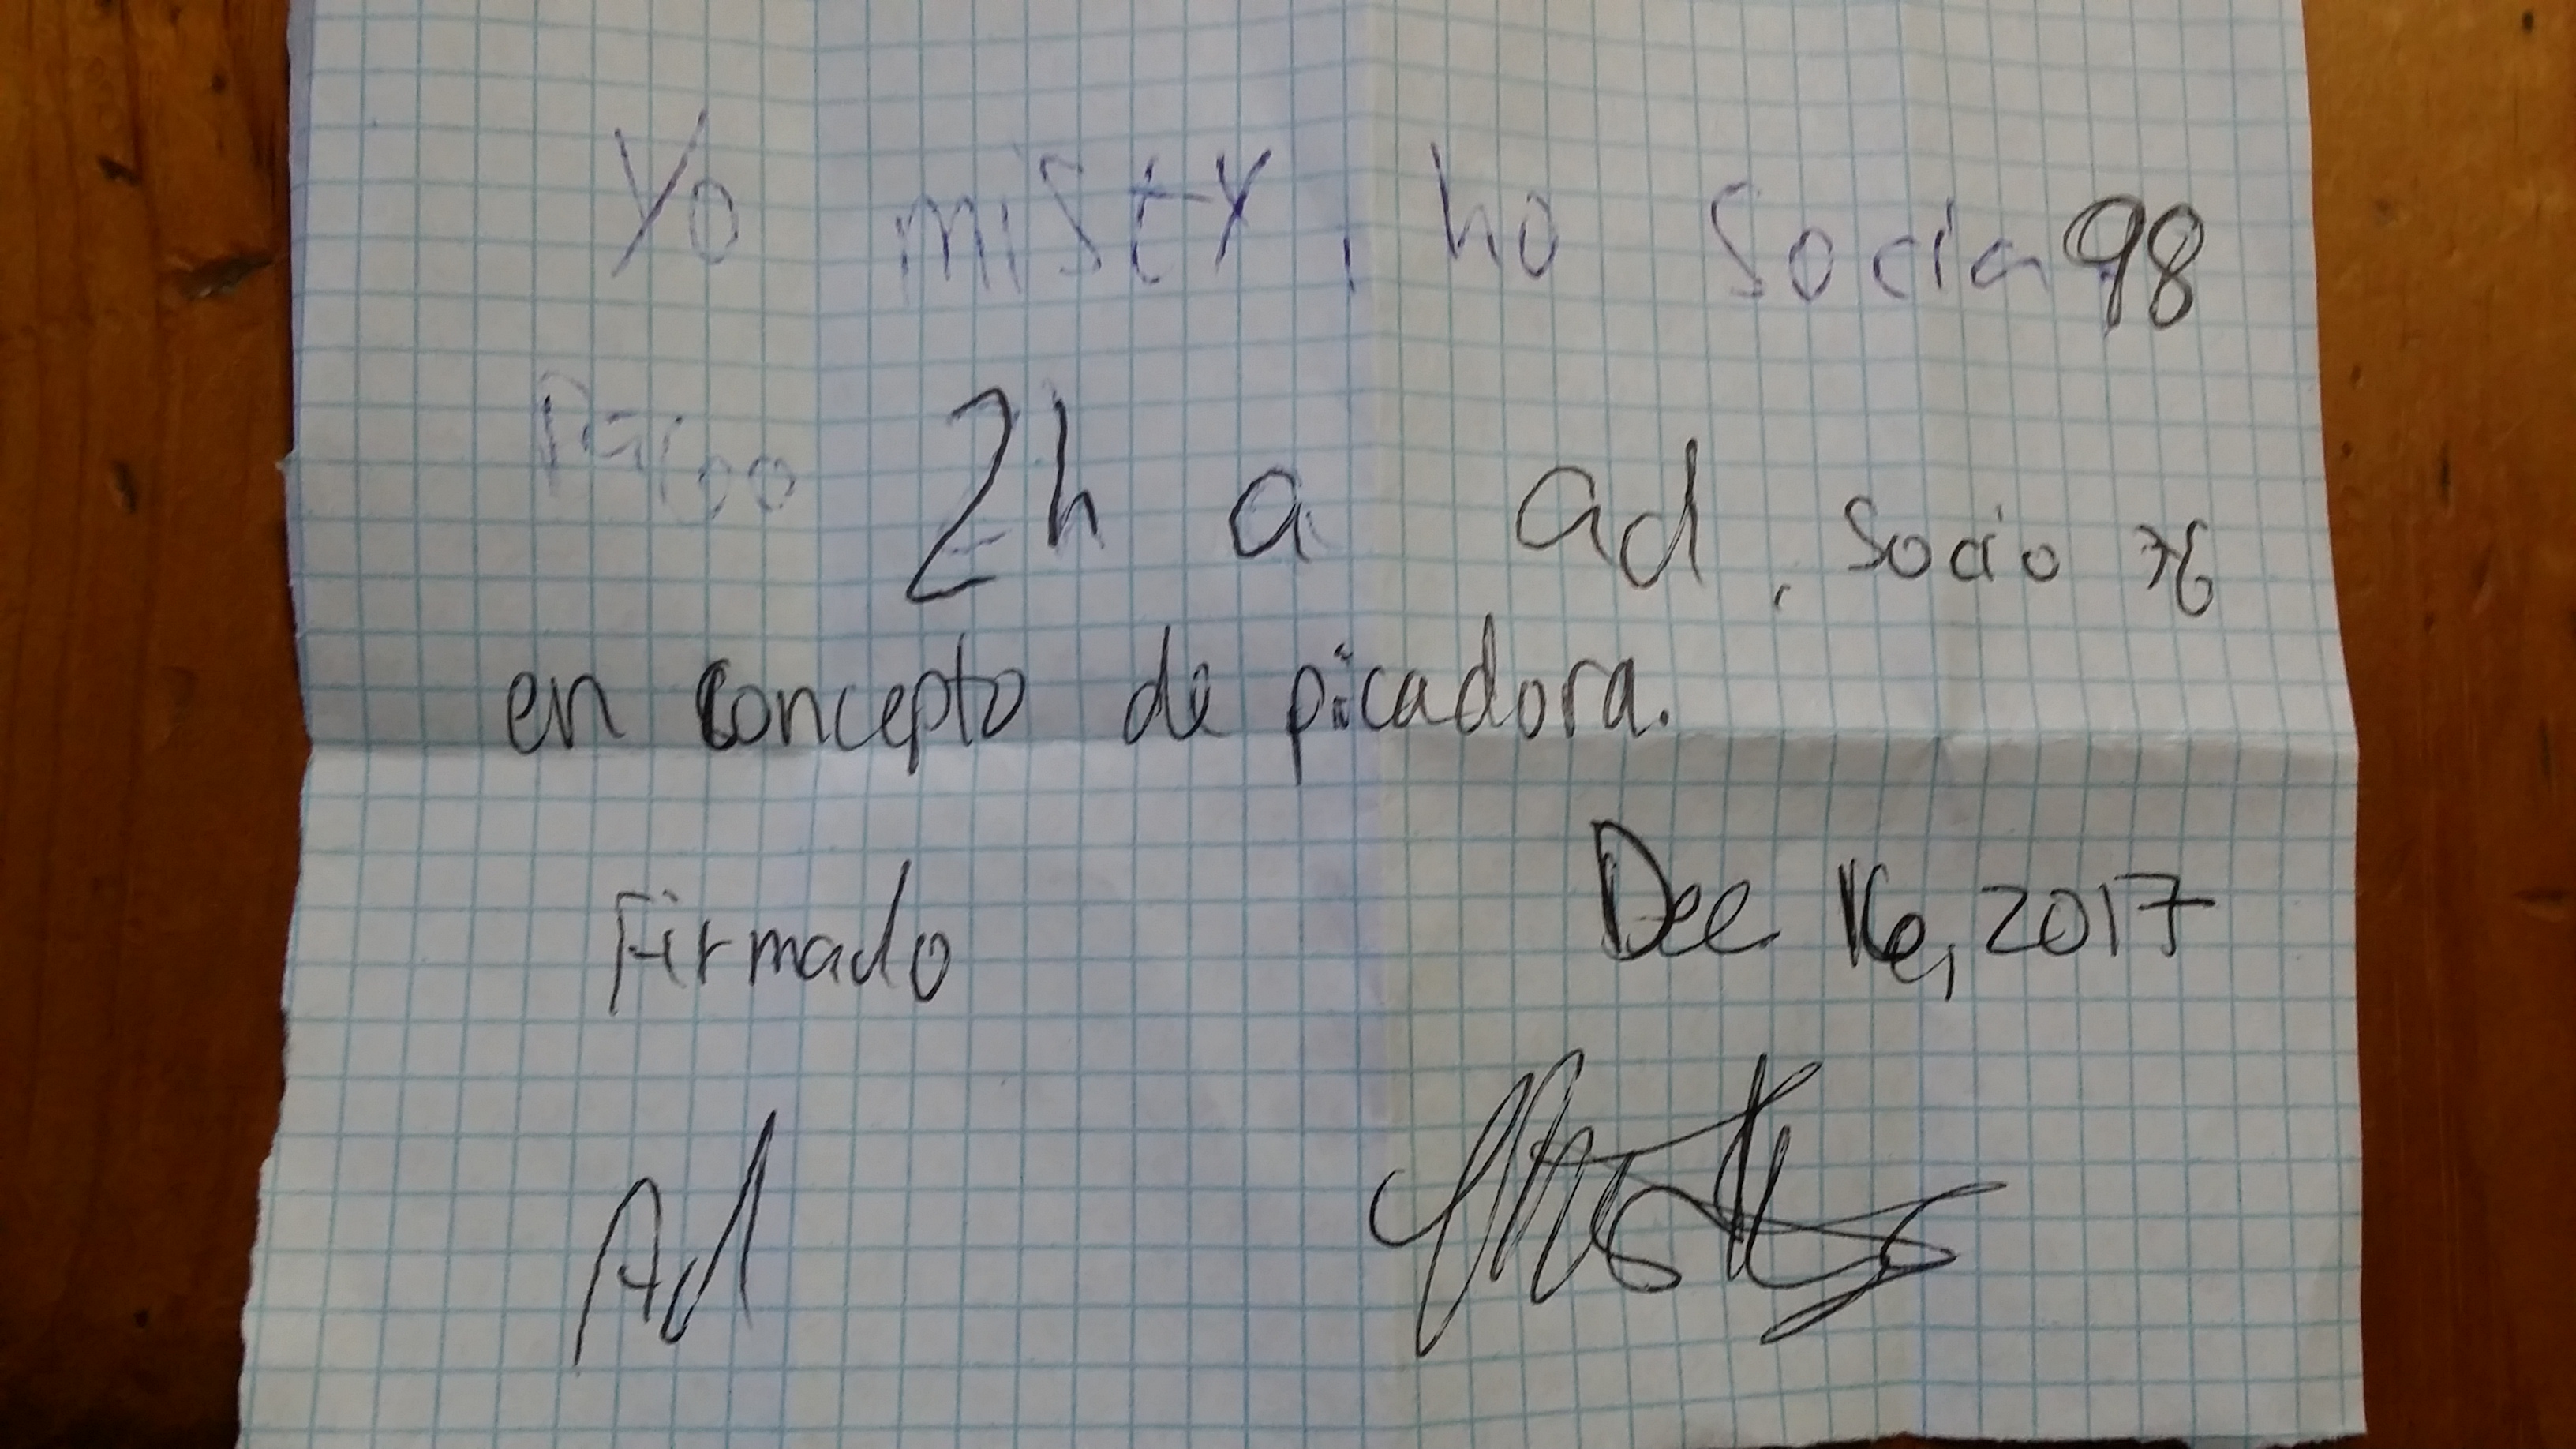 Yo misty, no socia 98
Pago 2h a ad, socio 76
en concepto de picadora.
Firmado
Dec 16, 2017
Ad
Misty